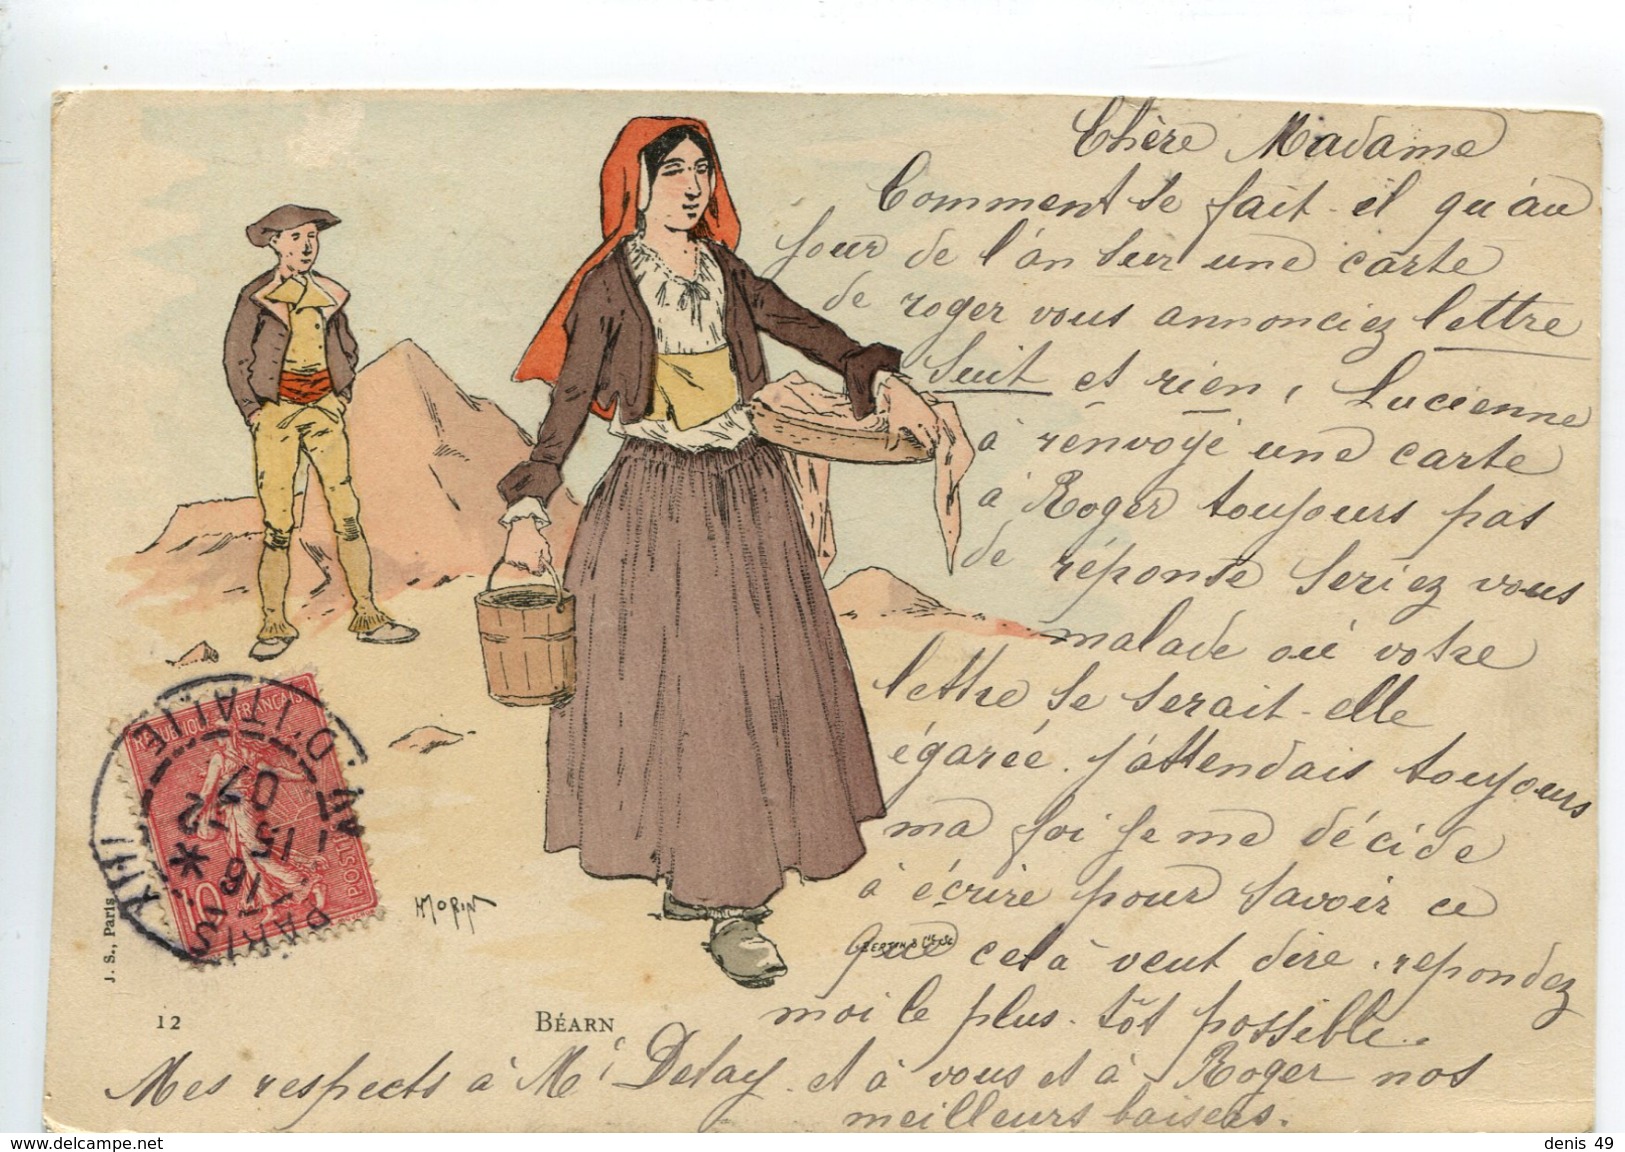 Chère Madame
Comment se fait-il qu'au
jour de l'an sur une carte
de roger vous annonciez lettre
suit et rien, Lucienne
à renvoyé une carte
à Roger toujours pas
de réponse seriez vous
malade où votre
lettre se serait-elle
égarée. j'attendais toujours
ma foi je me décide
à écrire pour savoir ce
que celà veut dire. repondez
moi le plus-tôt possible.
Mes respects à Mr Delay et à vous et à Roger nos
meilleurs baisers.
HMORIN
J. S., Paris
12
BÉARN
REPUBLIQUE FRANÇAISE
POSTES
10
PARIS XIII
AV. D'ITALIE
16
15
2
07
denis 49